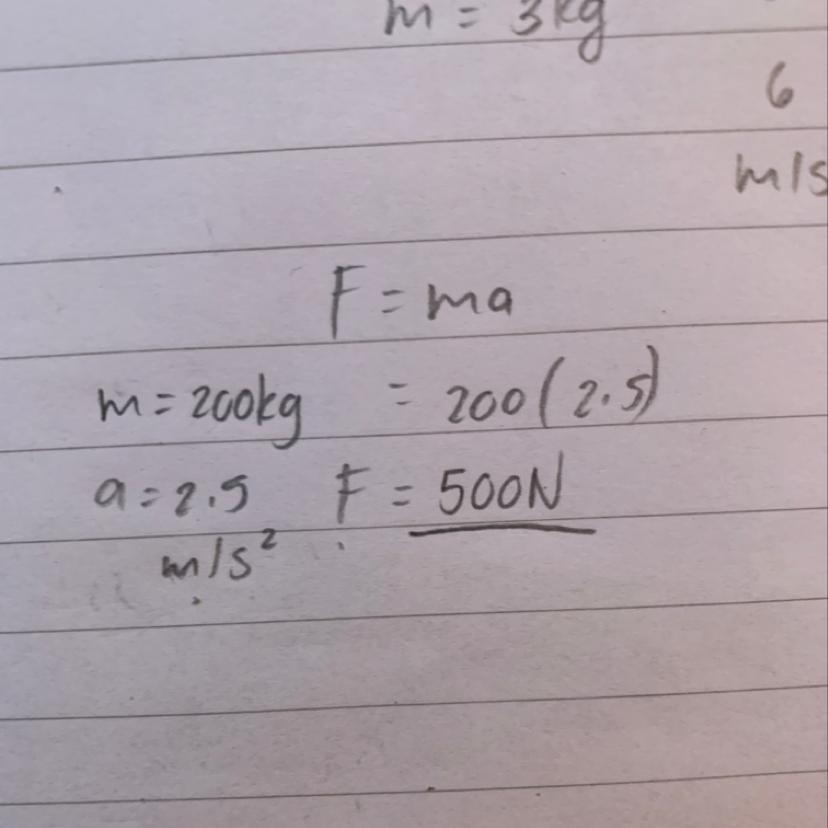 m = 3kg
6
m/s
F = ma
m = 200kg = 200(2.5)
a = 2.5 F = 500N
m/s²